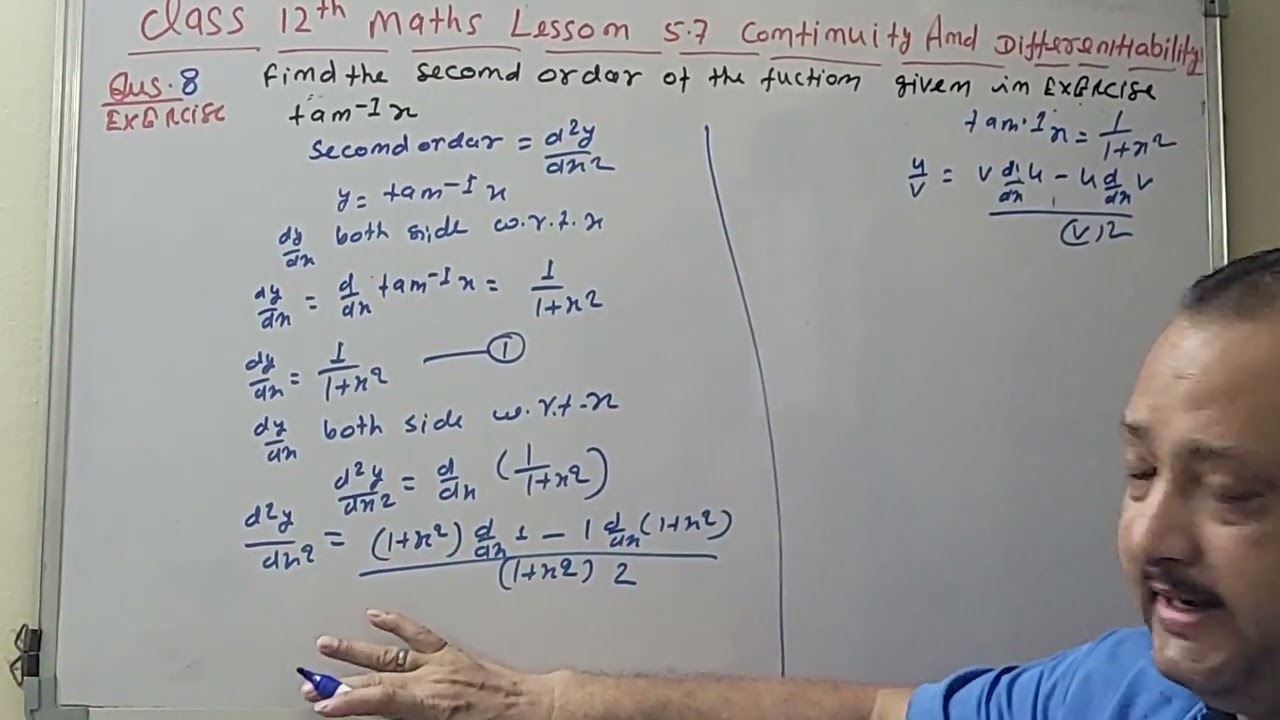 Class 12th Maths Lesson 5.7 Continuity And Differenitiability
Qus. 8 Find the second ordar of the fuction given in EXERCISE
EXERCISE tan⁻¹x
second ordar = d²y/dx²
y = tan⁻¹ x
dy/dx both side w.r.t. x
dy/dx = d/dx tan⁻¹x = 1/1+x²
dy/dx = 1/1+x² — ①
dy/dx both side w.r.t-x
d²y/dx² = d/dx (1/1+x²)
d²y/dx² = (1+x²) d/dx 1 - 1 d/dx (1+x²) / (1+x²) 2
tan-1x = 1/1+x²
u/v = v d/dx u - u d/dx v / (v)2